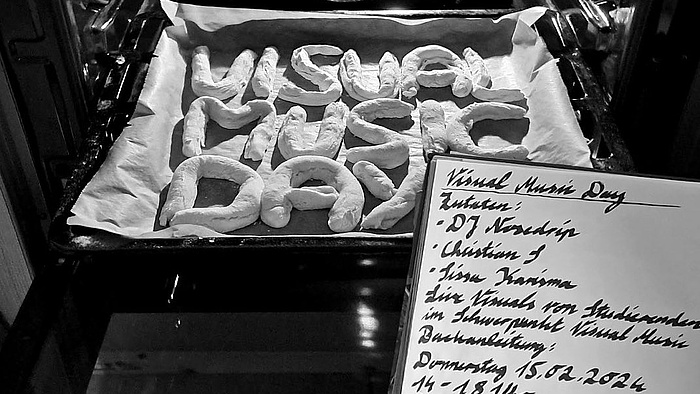 VISUAL
MUSIC
DAY
Visual Music Day
Zutaten:
- DJ Nosedrip
- Christian S
- Sissa Karisma
Live Visuals von Studierenden
im Schwerpunkt Visual Music
Backanleitung:
Donnerstag 15.02.2024
14-18